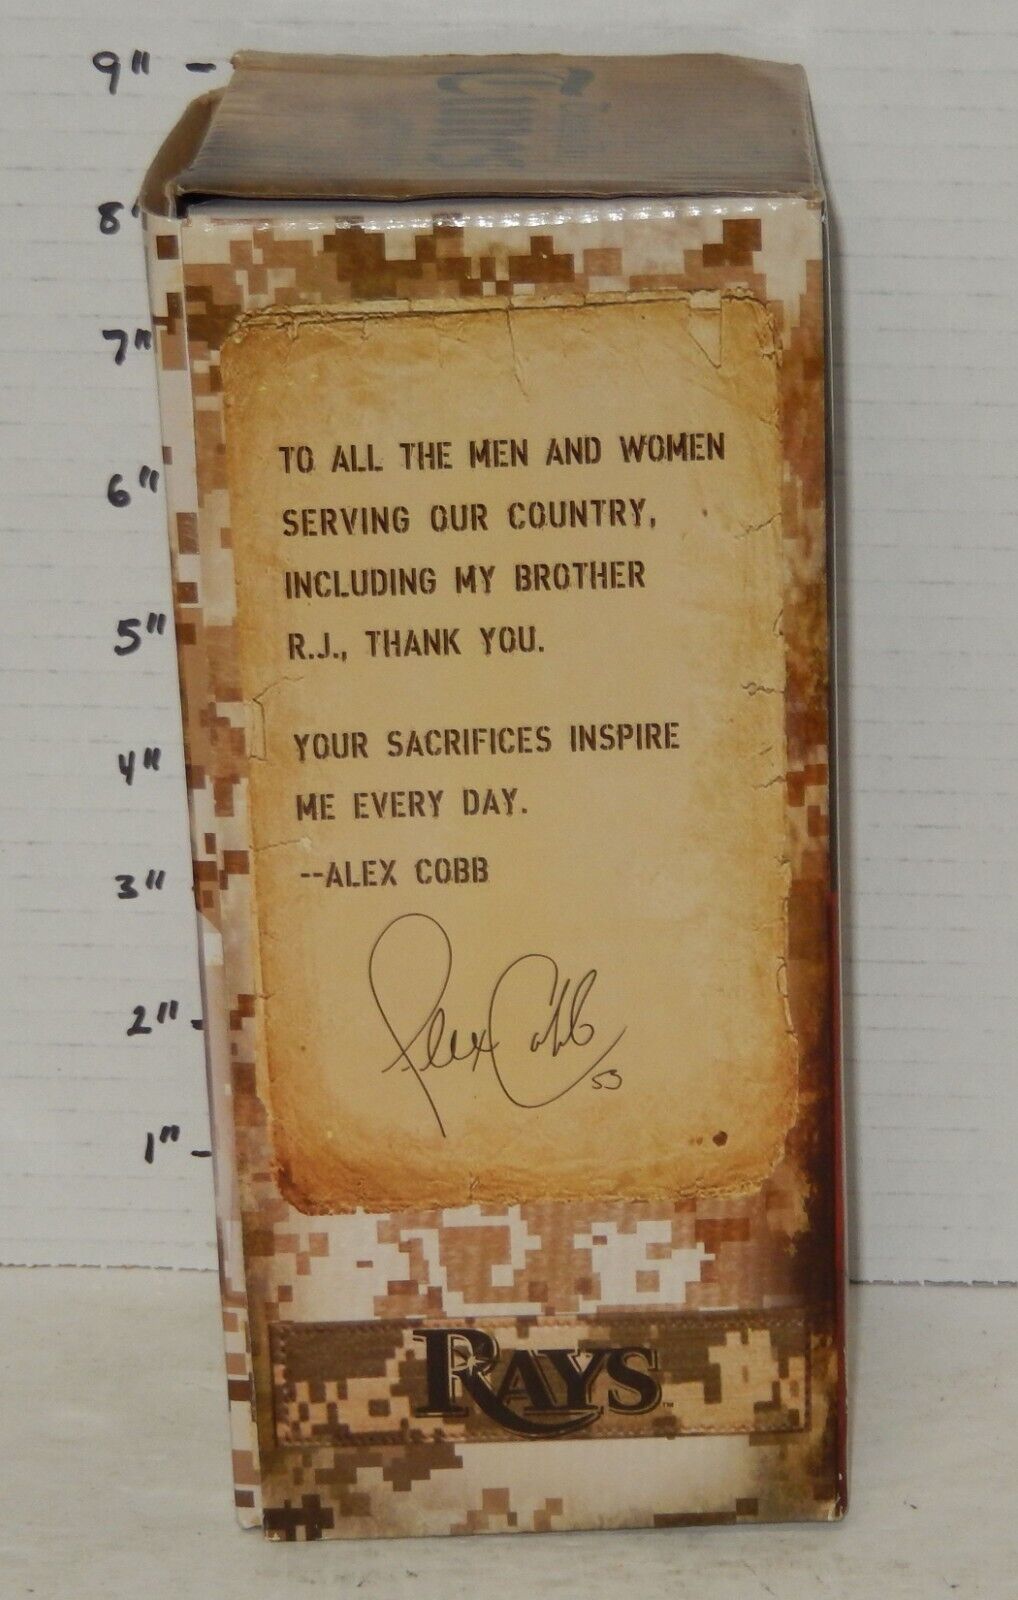 9"
8"
7"
6"
5"
4"
3"
2"
1"
TO ALL THE MEN AND WOMEN
SERVING OUR COUNTRY,
INCLUDING MY BROTHER
R.J., THANK YOU.
YOUR SACRIFICES INSPIRE
ME EVERY DAY.
--ALEX COBB
Alex Cobb 53
RAYS™